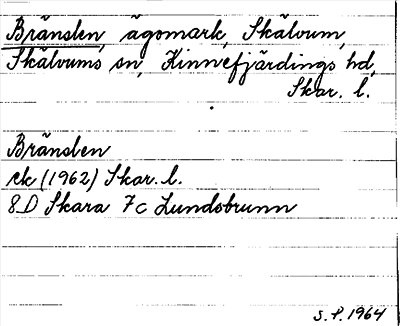 Bränslen, ägomark, Skälvum,
Skälvums sn, Kinnefjärdings hd,
Skar. l.
Bränslen
ek (1962) Skar. l.
8D Skara 7c Lundsbrunn
S. P. 1964